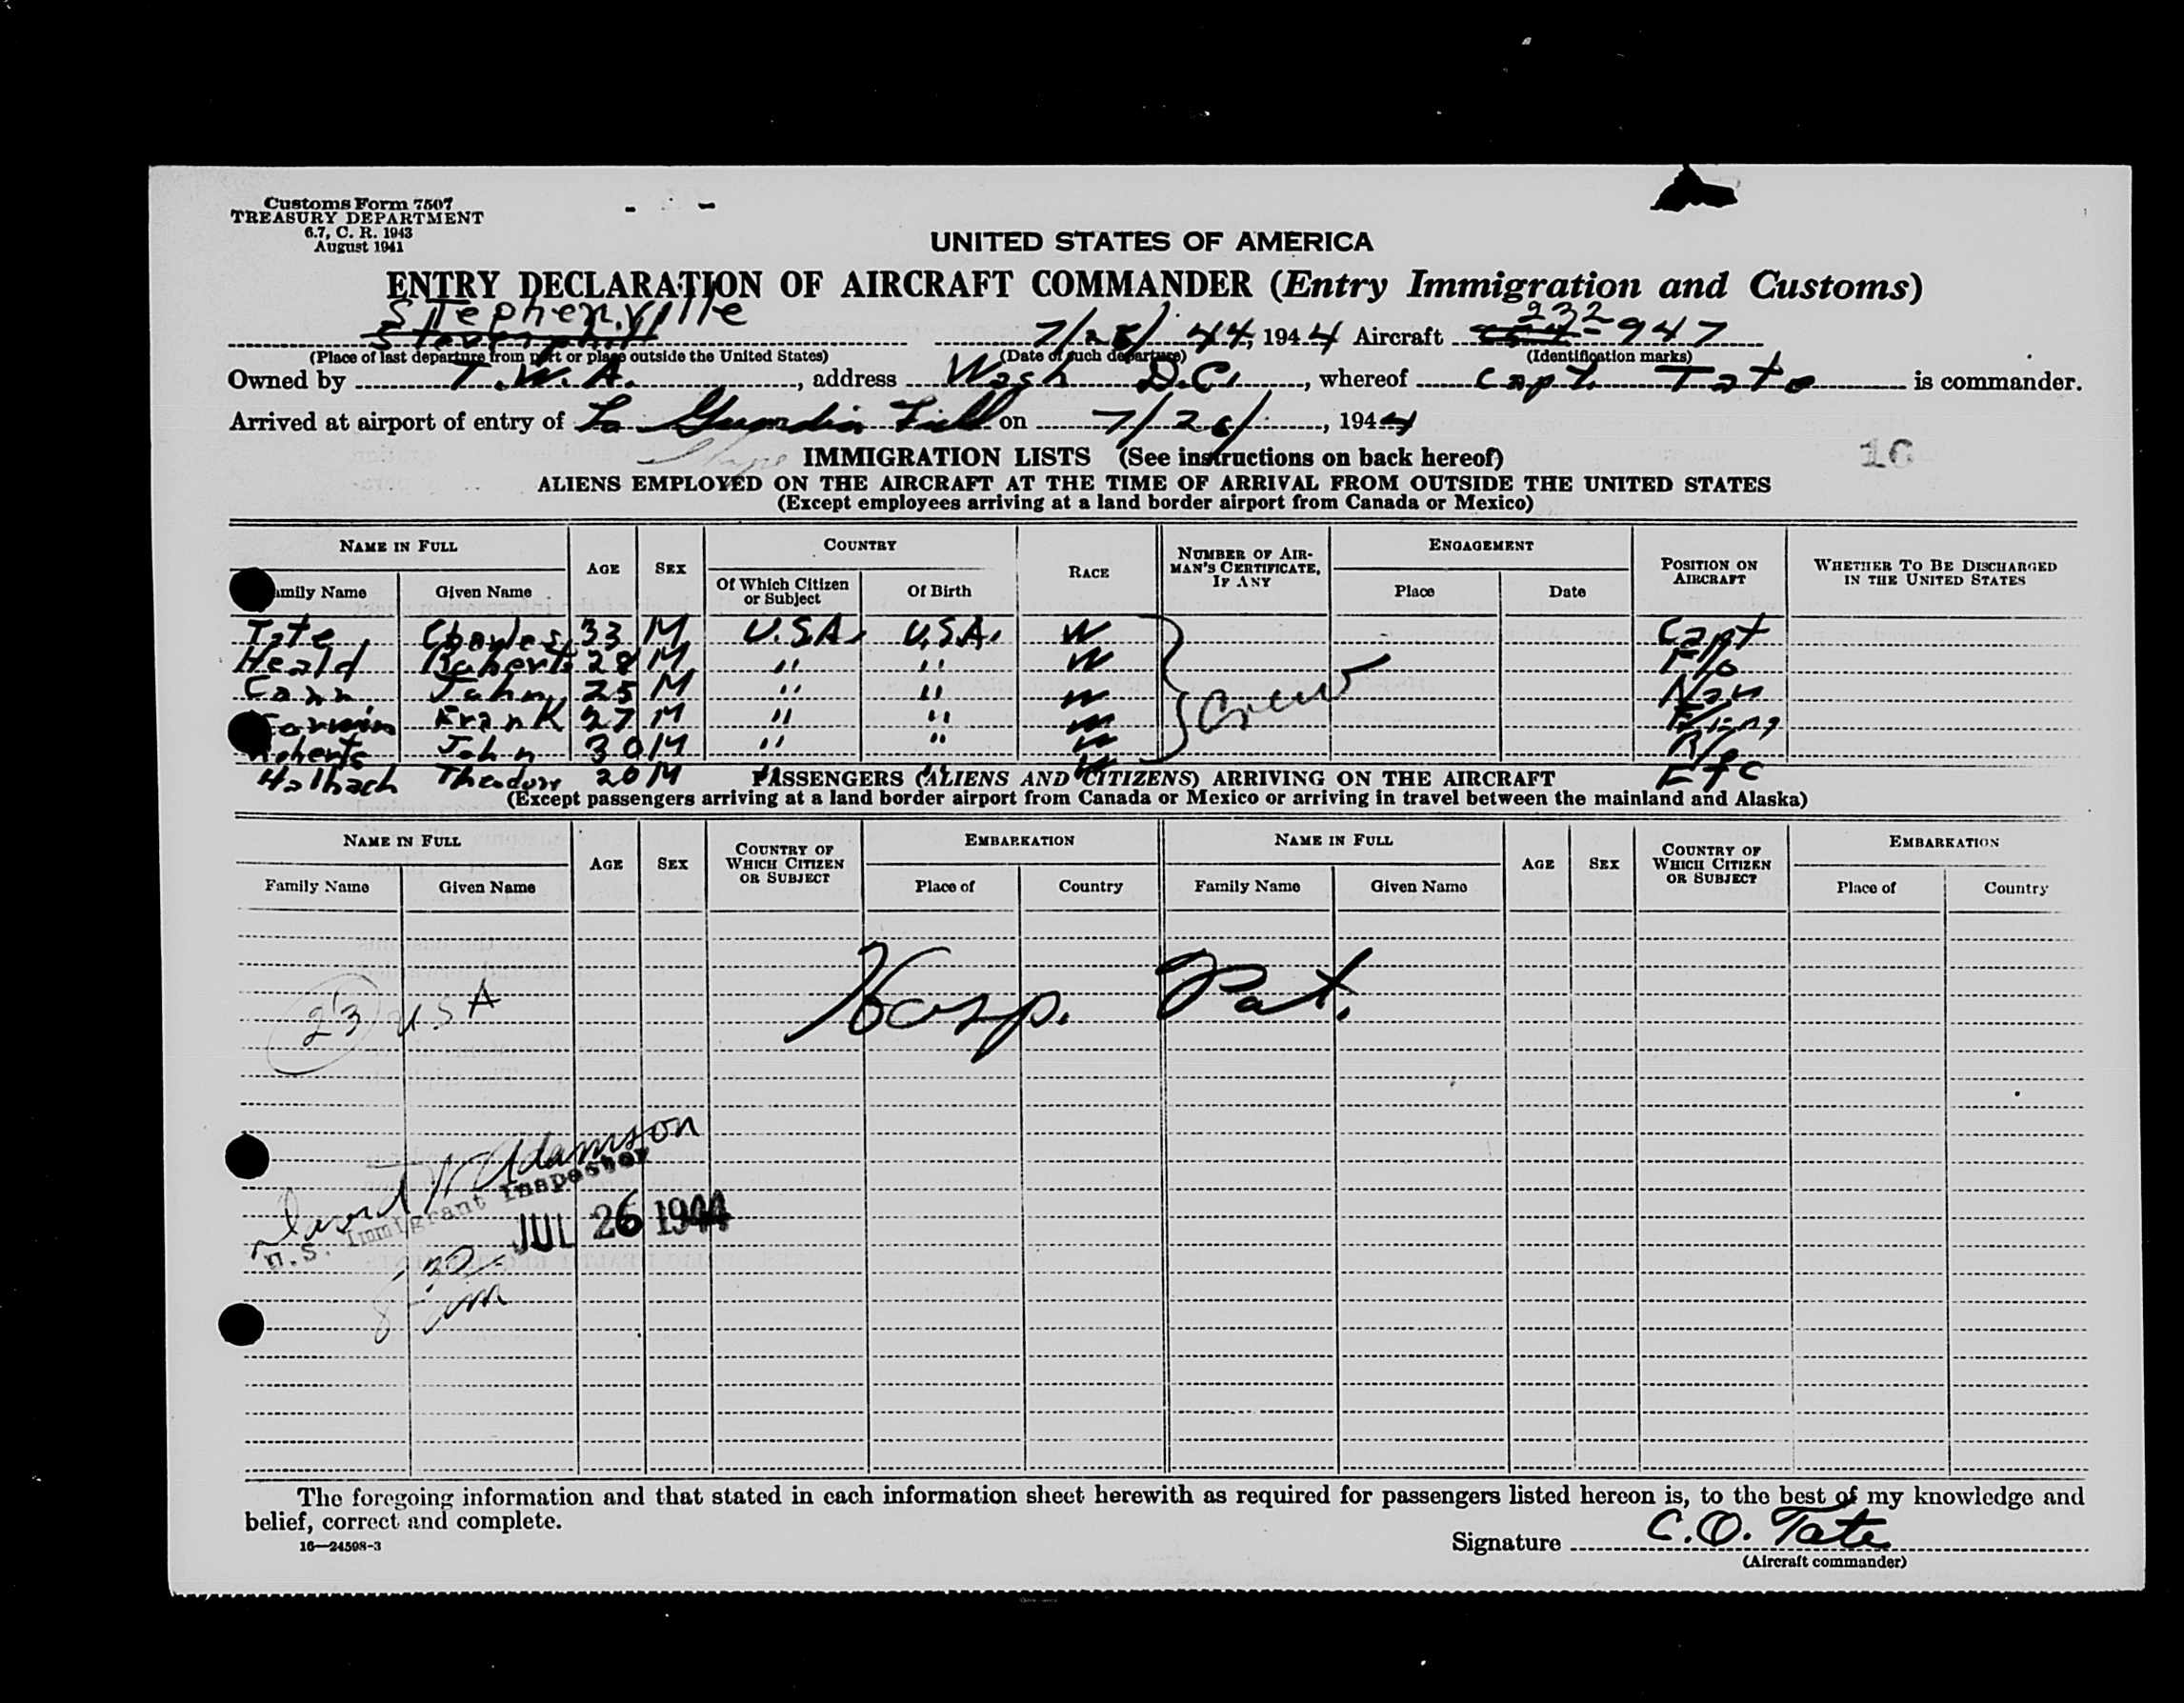 Customs Form 7507
TREASURY DEPARTMENT
6.7, C. R. 1943
August 1941
UNITED STATES OF AMERICA
ENTRY DECLARATION OF AIRCRAFT COMMANDER (Entry Immigration and Customs)
Stephenville 7/26/44, 1944 Aircraft 232947
(Place of last departure from port or place outside the United States) (Date of such departure) (Identification marks)
Owned by T.W.A., address Wash D.C., whereof Capt. Tate is commander.
Arrived at airport of entry of La Guardia Field on 7/26/, 1944
IMMIGRATION LISTS (See instructions on back hereof)
16
ALIENS EMPLOYED ON THE AIRCRAFT AT THE TIME OF ARRIVAL FROM OUTSIDE THE UNITED STATES
(Except employees arriving at a land border airport from Canada or Mexico)
NAME IN FULL AGE SEX COUNTRY RACE NUMBER OF AIRMAN'S CERTIFICATE, IF ANY ENGAGEMENT POSITION ON AIRCRAFT WHETHER TO BE DISCHARGED IN THE UNITED STATES
mily Name Given Name Of Which Citizen or Subject Of Birth Place Date
Tate Charles 33 M U.S.A. U.S.A. W Capt
Heald Robert 28 M " " W F/o
Cann John 25 M " " W Nav
Frank 27 M " " W
Roberts John 30 M " " W R/o
Crew
Halbach Theodore 20 M W
PASSENGERS (ALIENS AND CITIZENS) ARRIVING ON THE AIRCRAFT
(Except passengers arriving at a land border airport from Canada or Mexico or arriving in travel between the mainland and Alaska)
NAME IN FULL AGE SEX COUNTRY OF WHICH CITIZEN OR SUBJECT EMBARKATION NAME IN FULL AGE SEX COUNTRY OF WHICH CITIZEN OR SUBJECT EMBARKATION
Family Name Given Name Place of Country Family Name Given Name Place of Country
23 U.S.A Hosp. Pat.
Adamson
U.S. Immigrant Inspector
JUL 26 1944
8 30 am
The foregoing information and that stated in each information sheet herewith as required for passengers listed hereon is, to the best of my knowledge and
belief, correct and complete.
16—24598-3
Signature C.O. Tate
(Aircraft commander)